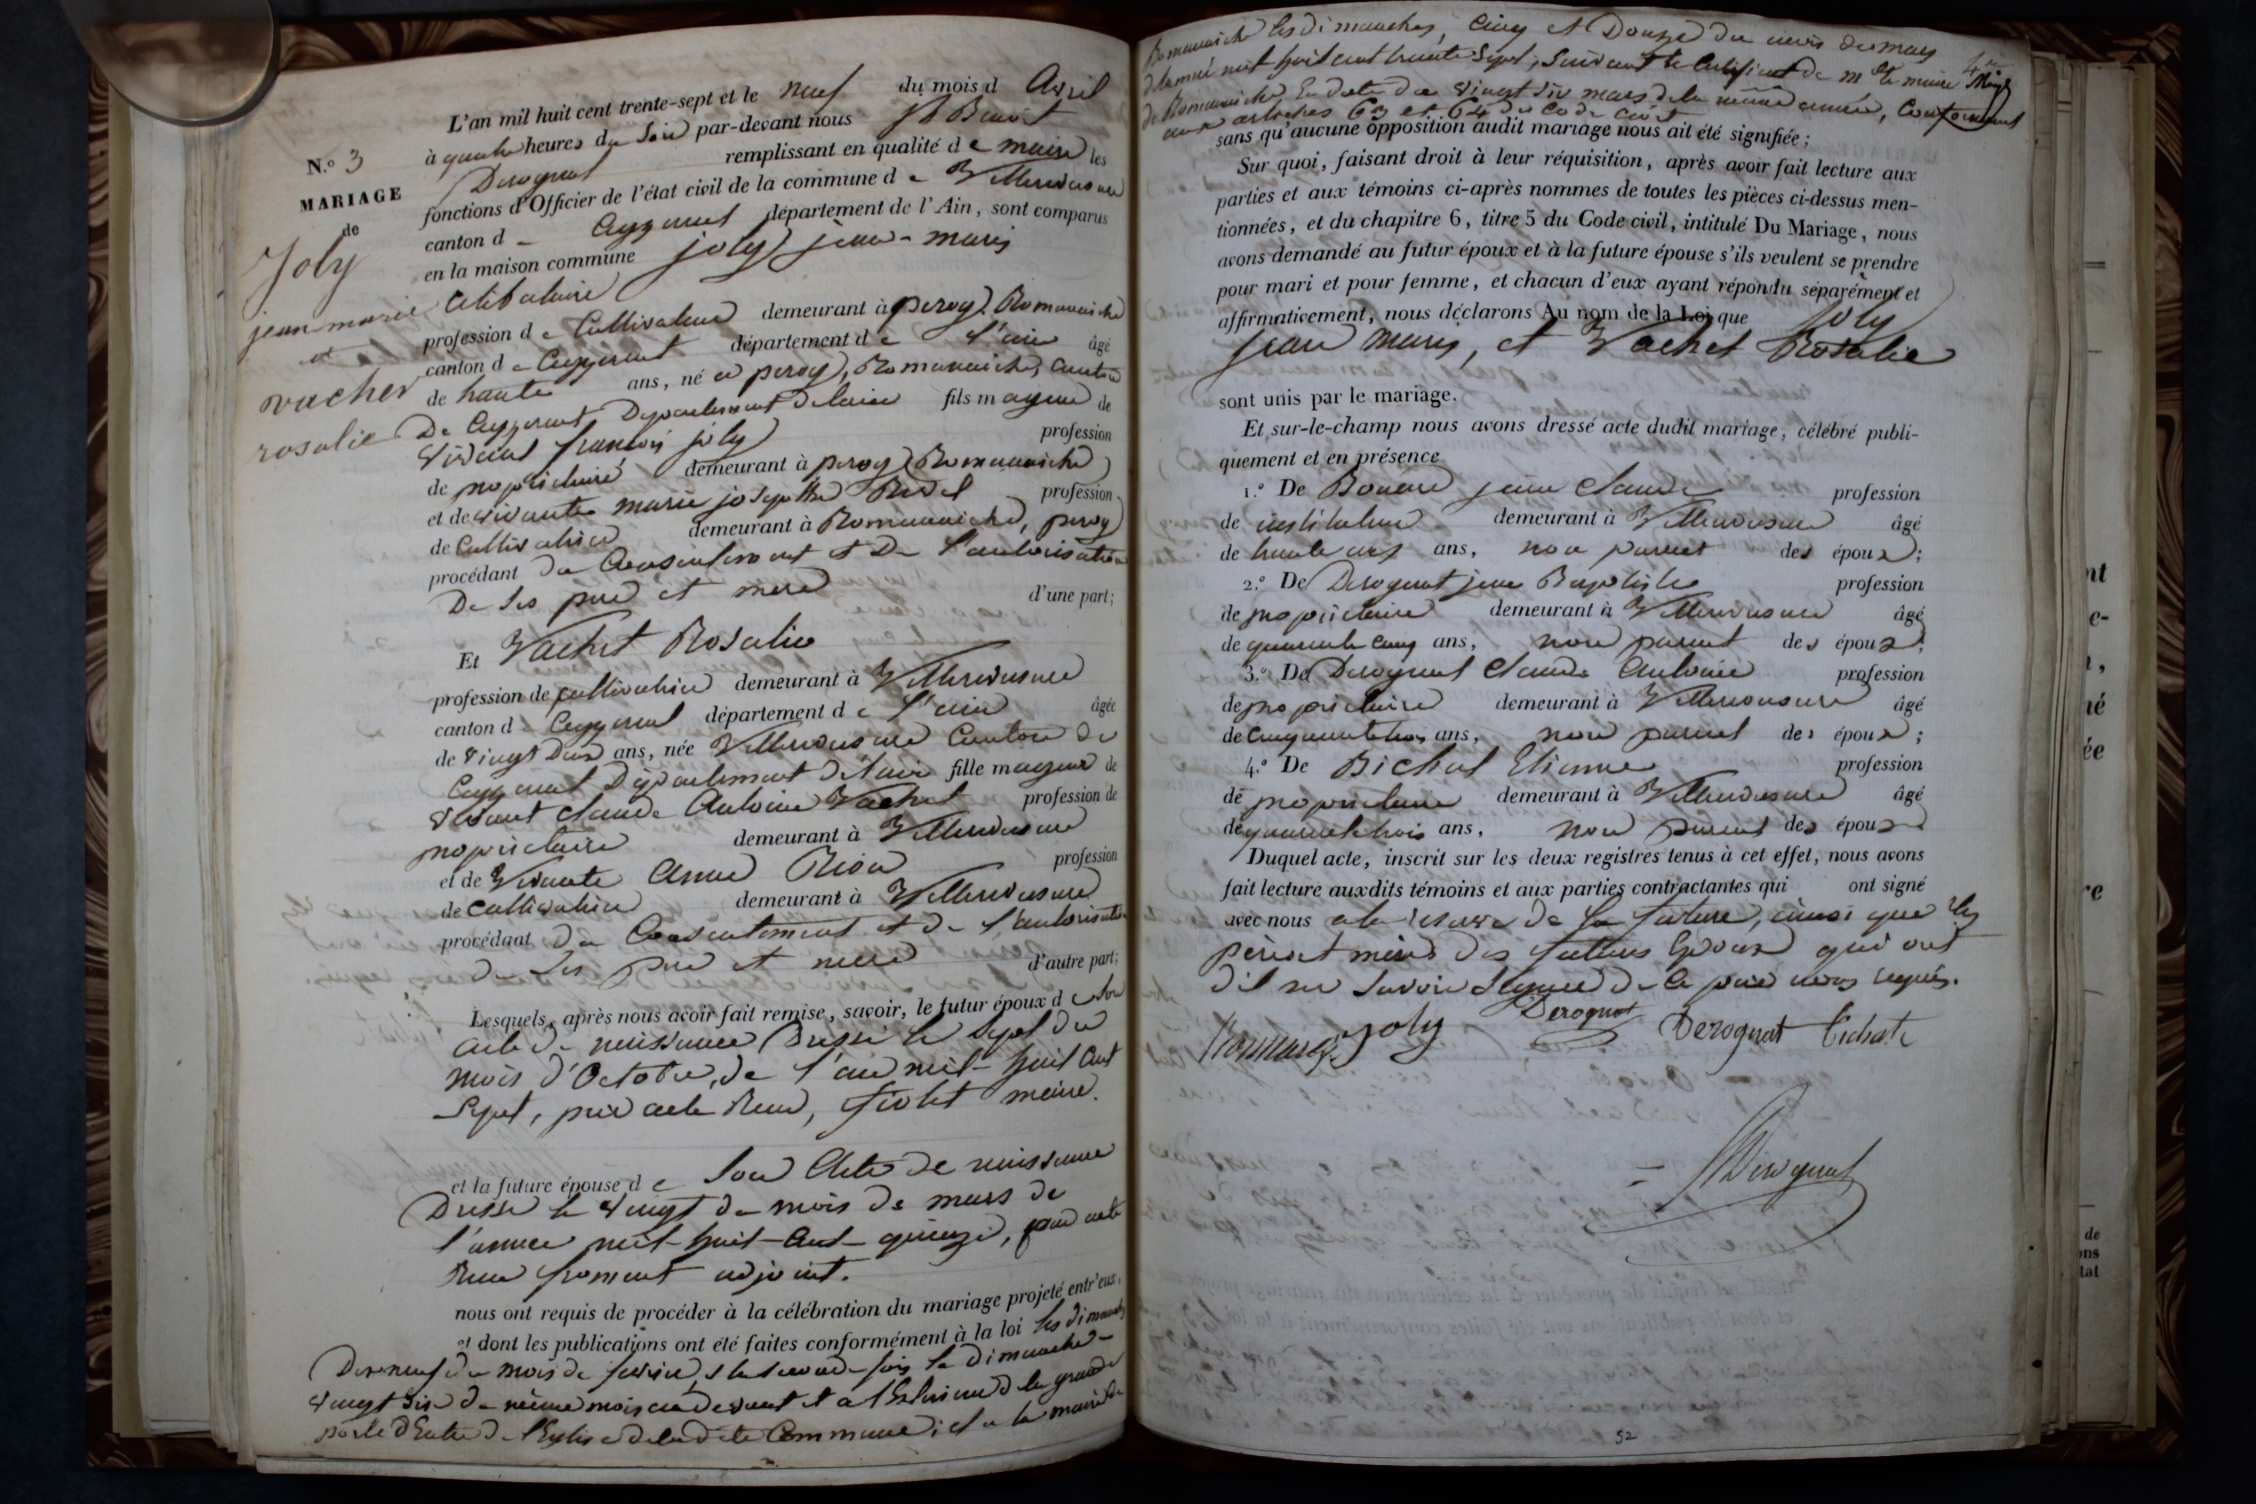 L'an mil huit cent trente-sept et le neuf du mois d Avril
N.o 3
à quatre heures du soir par-devant nous Jh Benoit
Derognat remplissant en qualité de maire les
MARIAGE
fonctions d'Officier de l'état civil de la commune de Villereversure
de
canton d Ceyzeriat département de l'Ain, sont comparus
Joly
en la maison commune joly jean-marie
jean marie
Célibataire
et
profession de Cultivateur demeurant à peroy, Romanaiche
canton de Ceyzeriat département de l'ain âgé
vacher
de trente ans, né a peroy, Romanaiche, canton
rosalie
De Ceyzeriat Departement delain fils mageur de
vivant francois joly profession
de propriétaire demeurant à peroy (Romanaiche)
et de vivante marie josephte profession
de Cultivatrice demeurant à Romanaiche, peroy
procédant du Consentement et De l'autorisation
De ses pere et mere d'une part;
Et Vachet Rosalie
profession de cultivatrice demeurant à Villereversure
canton d Ceyzeriat département de l'ain âgée
de vingt Deux ans, née Villereversure Canton de
Ceyzeriat Département de l'ain fille mageure de
vivant Claude Antoine Vachet profession de
propriétaire demeurant à Villereversure
et de Vivante Anne profession
de cultivatrice demeurant à Villereversure
procédant du Consentement et de l'autorisation
de ses pere et mere d'autre part;
Lesquels, après nous avoir fait remise, savoir, le futur époux de son
acte de naissance Dressé le sept du
mois d'Octobre, de l'an mil-huit cent
sept, par acte Reçu, maire.
et la future épouse de son Acte de naissance
Dressé le vingt du mois de mars de
l'année mil-huit-cent-quinze, par acte
Reçu froment adjoint.
nous ont requis de procéder à la célébration du mariage projeté entr'eux,
et dont les publications ont été faites conformément à la loi les dimanches
Dixneuf du mois de fevrier, et la seconde fois le Dimanche
vingt six du même mois au devant et a l'exterieur de la grande
porte d'Entrée de l'Eglise de la dite Commune; et a la mairie de
Romanaiche les dimanches, Cinq et Douze du mois de mars
de l'année mil huit cent trente sept, suivant le Certificat de mr le maire
de Romanaiche En date du vingt six mars de la même année, Conformément
aux articles 63 et 64 du Code civil
sans qu'aucune opposition audit mariage nous ait été signifiée;
Sur quoi, faisant droit à leur réquisition, après avoir fait lecture aux
parties et aux témoins ci-après nommes de toutes les pièces ci-dessus men-
tionnées, et du chapitre 6, titre 5 du Code civil, intitulé Du Mariage, nous
avons demandé au futur époux et à la future épouse s'ils veulent se prendre
pour mari et pour femme, et chacun d'eux ayant répondu séparément et
affirmativement, nous déclarons Au nom de la Loi que Joly
Jean Marie, et Vachet Rosalie
sont unis par le mariage.
Et sur-le-champ nous avons dressé acte dudit mariage, célébré publi-
quement et en présence
1.o De jean Claude profession
de instituteur demeurant à Villereversure âgé
de trente ans, non parent des époux;
2.o De Derognat jean Baptiste profession
de propriétaire demeurant à Villereversure âgé
de quarante cinq ans, non parent des époux;
3.o De Derognat Claude Antoine profession
de propriétaire demeurant à Villereversure âgé
de Cinquante trois ans, non parent des époux;
4.o De Bichat Etienne profession
de propriétaire demeurant à Villereversure âgé
de quarante trois ans, non parent des époux
Duquel acte, inscrit sur les deux registres tenus à cet effet, nous avons
fait lecture auxdits témoins et aux parties contractantes qui ont signé
avec nous a la reserve de la future, ainsi que les
père et mère des futturs Epoux qui ont
dit ne savoir signer de ce par nous requis.
joly Derognat Derognat bichat
Derognat
52